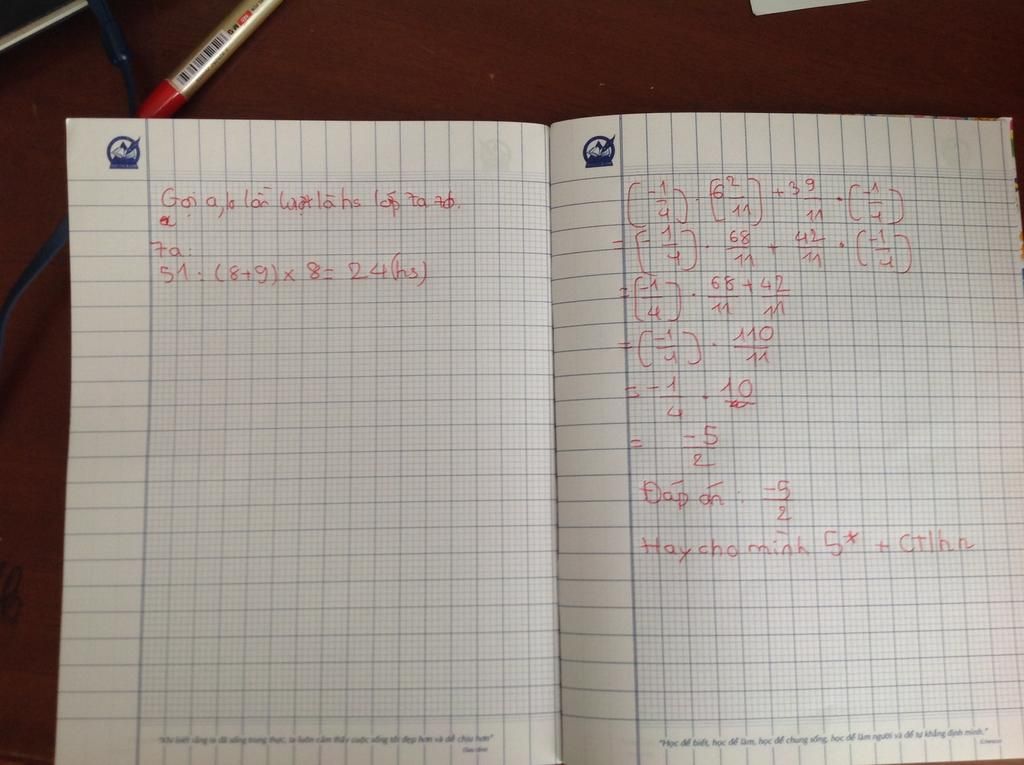 Gọi a,b lần lượt là hs lớp 7a 7b.
7a:
51 : (8+9) × 8 = 24 (hs)
"Khi biết rằng ta đã sống trung thực, ta luôn cảm thấy cuộc sống tốt đẹp hơn và dễ chịu hơn"
(-1/4) . (6 2/11) + 3 9/11 . (-1/4)
= (-1/4) . 68/11 + 42/11 . (-1/4)
= (-1/4) . 68/11 + 42/11
= (-1/4) . 110/11
= -1/4 . 10
= -5/2
Đáp án : -5/2
Hay cho mình 5* + CTlhn
"Học để biết, học để làm, học để chung sống, học để làm người và để tự khẳng định mình."
(Unesco)